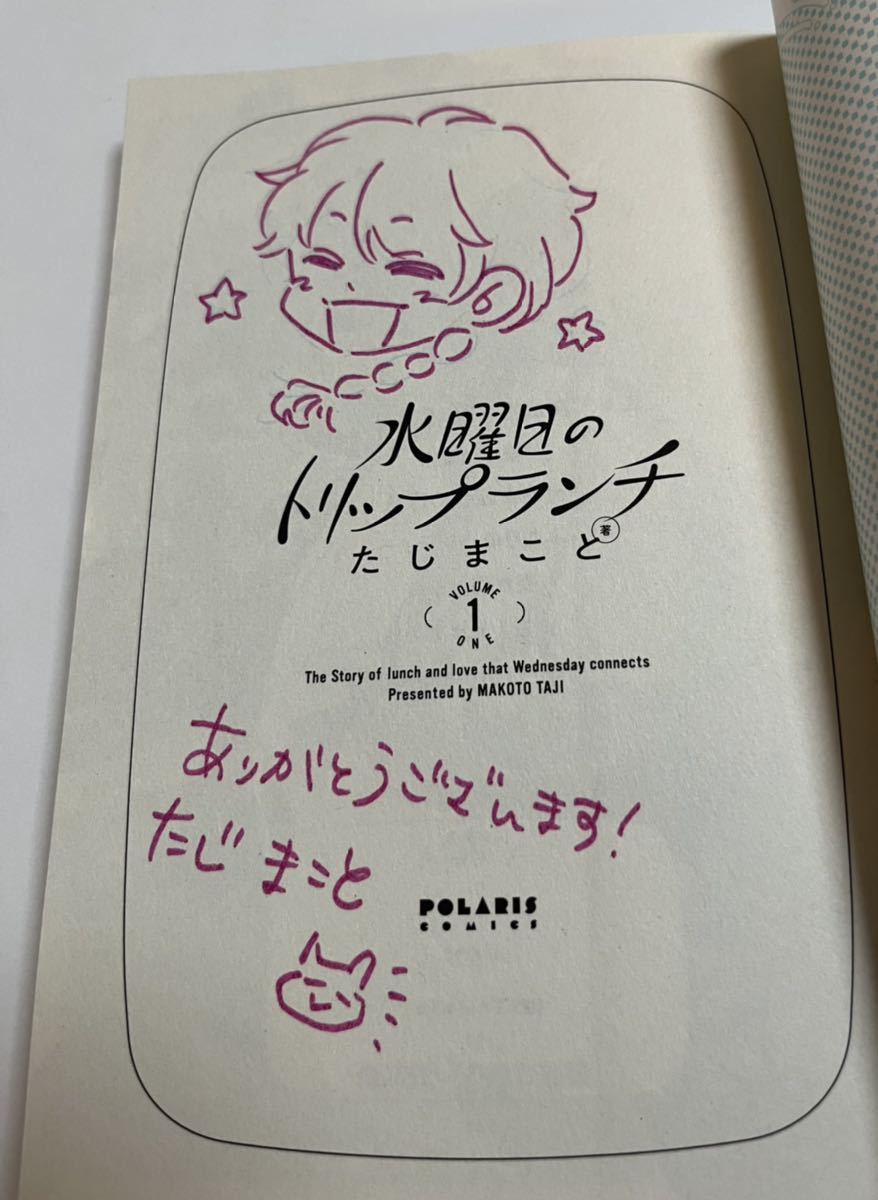 水曜日の
トリップランチ
たじまこと 著
VOLUME
1
ONE
The Story of lunch and love that Wednesday connects
Presented by MAKOTO TAJI
ありがとうございます!
たじまこと
POLARIS
COMICS